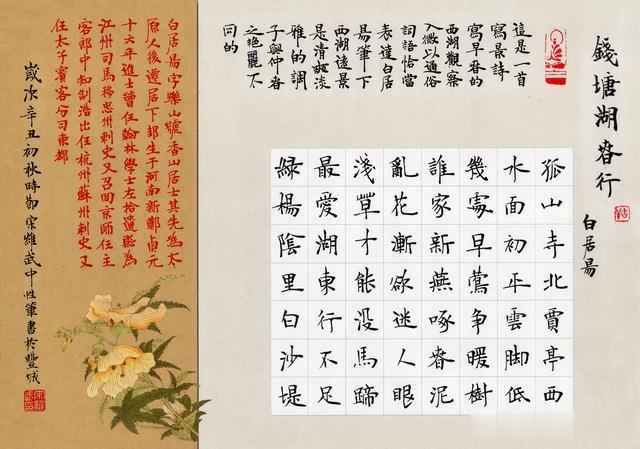 錢塘湖春行
白居易
這是一首
寫景詩
寫早春的
西湖觀察
入微以通俗
詞語恰當
表達白居
易筆下
西湖遠景
是清淡
雅的調
子與仲春
之艷麗不
同的
孤山寺北賈亭西
水面初平雲脚低
幾處早鶯争暖樹
誰家新燕啄春泥
亂花漸欲迷人眼
淺草才能没馬蹄
最愛湖東行不足
綠楊陰里白沙堤
白居易字樂山號香山居士其先為太
原人後遷居下邽生于河南新鄭貞元
十六年進士曾任翰林學士左拾遺貶為
江州司馬移忠州刺史又召回京師任主
客郎中知制浩出任杭州蘇州刺史又
任太子賓客分司東都
歲次辛丑初秋時宋雄武中性筆書於豐城